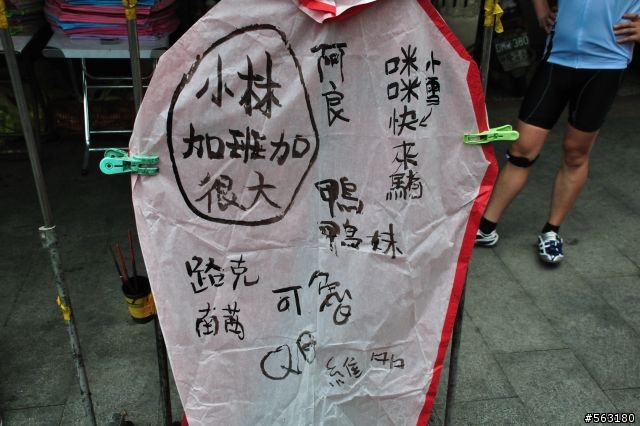 小林
加班加
很大
阿良
小雪
咪咪快來
鴨鴨妹
路克
可魯
QB
維尼
#563180